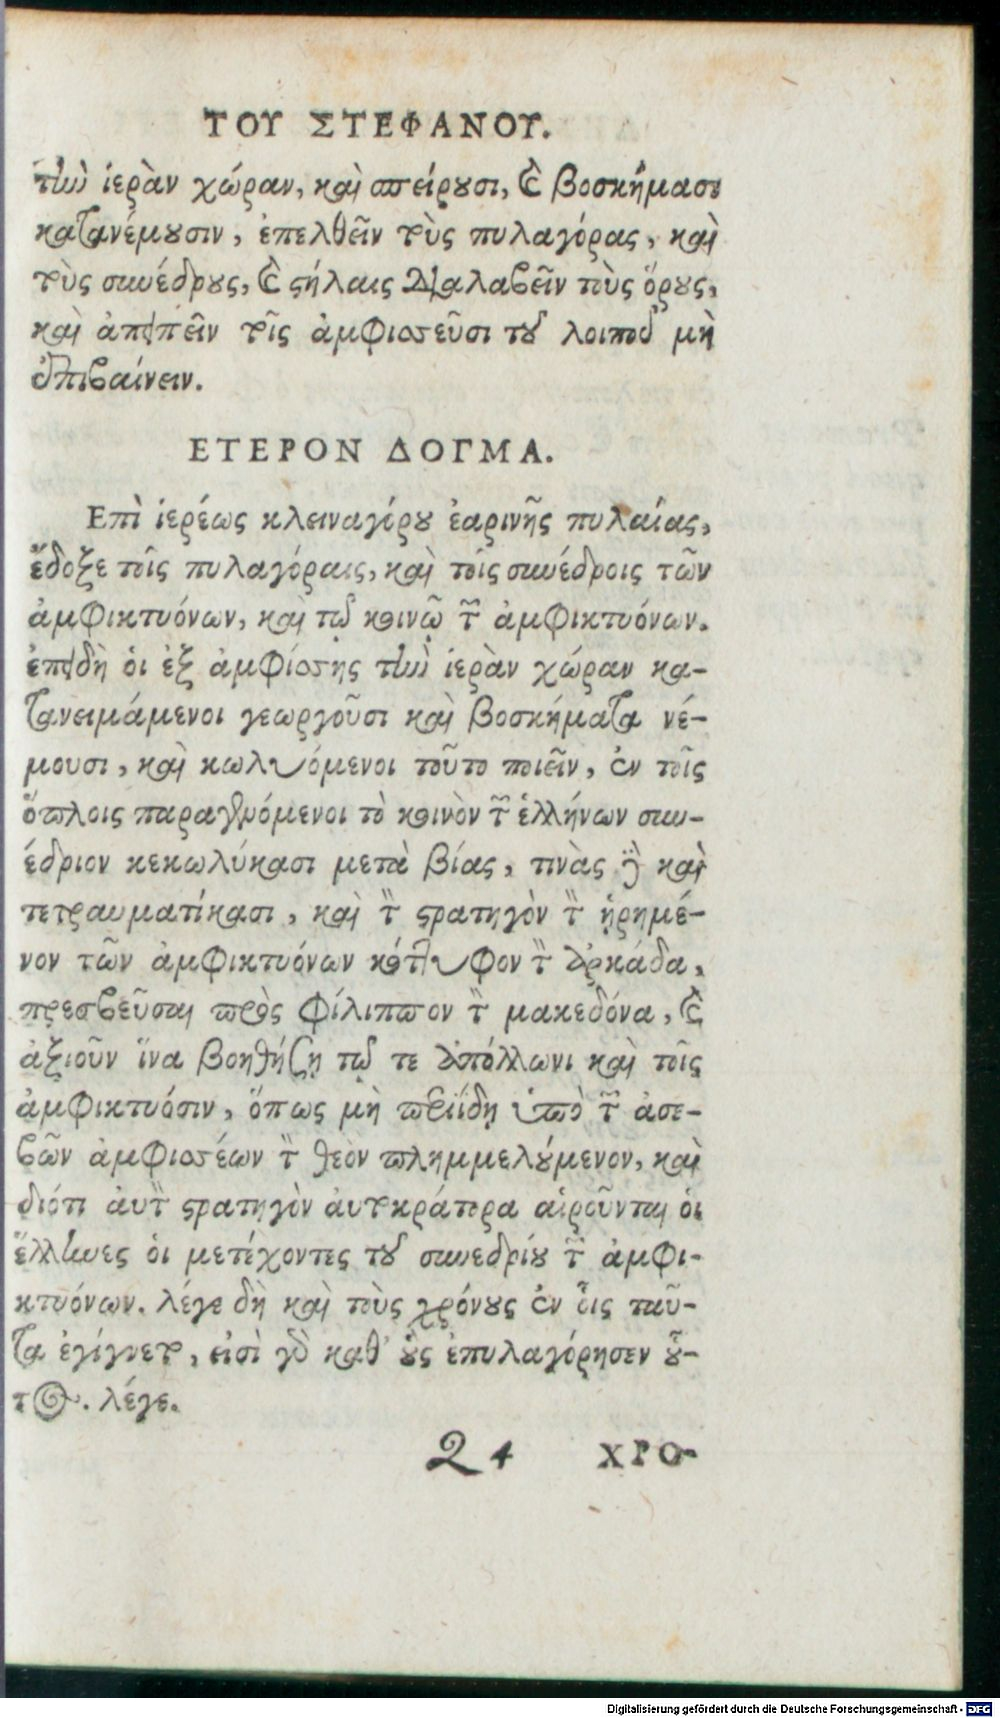 ΤΟΥ ΣΤΕΦΑΝΟΥ.
τὴν ἱερὰν χώραν, καὶ σπείρουσι, καὶ βοσκήμασι
κατανέμουσιν, ἐπελθεῖν τοὺς πυλαγόρας, καὶ
τοὺς συνέδρους, καὶ στήλαις διαλαβεῖν τοὺς ὅρους,
καὶ ἀπειπεῖν τοῖς ἀμφισσεῦσι τοῦ λοιποῦ μὴ
ἐπιβαίνειν.
ΕΤΕΡΟΝ ΔΟΓΜΑ.
Επὶ ἱερέως κλειναγόρου ἐαρινῆς πυλαίας,
ἔδοξε τοῖς πυλαγόραις, καὶ τοῖς συνέδροις τῶν
ἀμφικτυόνων, καὶ τῷ κοινῷ τῶν ἀμφικτυόνων.
ἐπειδὴ οἱ ἐξ ἀμφίσσης τὴν ἱερὰν χώραν κα-
τανειμάμενοι γεωργοῦσι καὶ βοσκήματα νέ-
μουσι, καὶ κωλυόμενοι τοῦτο ποιεῖν, ἐν τοῖς
ὅπλοις παραγενόμενοι τὸ κοινὸν τῶν ἑλλήνων συν-
έδριον κεκωλύκασι μετὰ βίας, τινὰς δὲ καὶ
τετραυματίκασι, καὶ τὸν στρατηγὸν τὸν ᾑρημέ-
νον τῶν ἀμφικτυόνων κότυφον τὸν ἀρκάδα,
πρεσβεῦσαι πρὸς φίλιππον τὸν μακεδόνα, καὶ
ἀξιοῦν ἵνα βοηθήσῃ τῷ τε ἀπόλλωνι καὶ τοῖς
ἀμφικτυόσιν, ὅπως μὴ περιΐδῃ ὑπὸ τῶν ἀσε-
βῶν ἀμφισσέων τὸν θεὸν πλημμελούμενον, καὶ
διότι αὐτὸν στρατηγὸν αὐτοκράτορα αἱροῦνται οἱ
ἕλληνες οἱ μετέχοντες τοῦ συνεδρίου τῶν ἀμφι-
κτυόνων. λέγε δὴ καὶ τοὺς χρόνους ἐν οἷς ταῦ-
τα ἐγίγνετο, εἰσὶ γὰρ καθ' οὓς ἐπυλαγόρησεν οὗ-
τος. λέγε.
Q 4 ΧΡΟ-
Digitalisierung gefördert durch die Deutsche Forschungsgemeinschaft - DFG